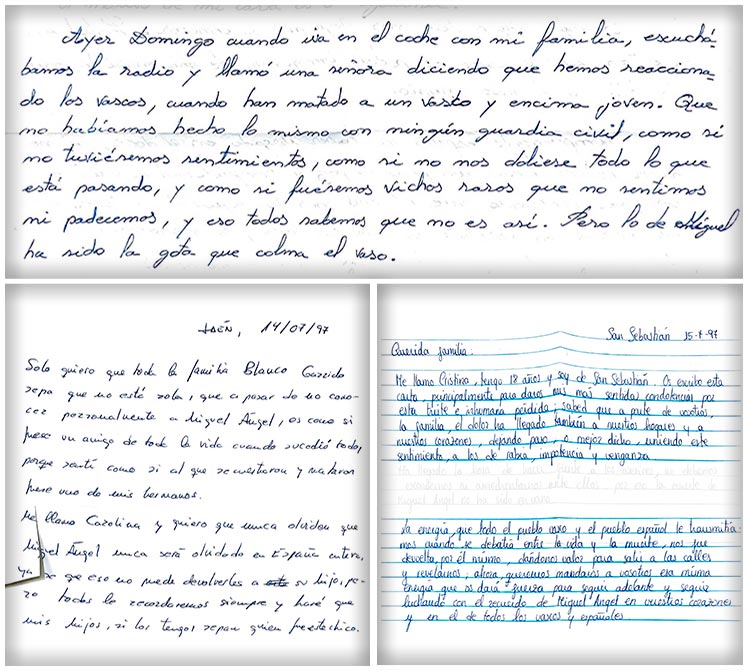 Ayer Domingo cuando iva en el coche con mi familia, escuchá-
bamos la radio y llamó una señora diciendo que hemos reacciona-
do los vascos, cuando han matado a un vasco y encima joven. Que
no habíamos hecho lo mismo con ningún guardia civil, como si
no tuviéremos sentimientos, como si no nos doliese todo lo que
está pasando, y como si fuéremos vichos raros que no sentimos
ni padecemos, y eso todos sabemos que no es así. Pero lo de Miguel
ha sido la gota que colma el vaso.
JAÉN, 14/07/97
Solo quiero que toda la familia Blanco Garrido
sepa que no está sola, que a pasar de no cono-
cer personalmente a Miguel Ángel, es como si
fuese un amigo de toda la vida cuando sucedió todo,
porque sentí como si al que secuestraron y mataron
fuese uno de mis hermanos.
Me llamo Carolina y quiero que nunca olviden que
Miguel Ángel nunca será olvidado en España entera,
ya se que eso no puede devolverles a su hijo, pe-
ro todos le recordaremos siempre y haré que
mis hijos, si los tengo, sepan quien fue este chico.
San Sebastián 15-7-97
Querida familia:
Me llamo Cristina, tengo 18 años y soy de San Sebastián. Os escribo esta
carta, principalmente para daros mis más sentidas condolencias por
esta triste e inhumana pérdida; sabed que a parte de vosotros,
la familia, el dolor ha llegado también a nuestros hogares y a
nuestros corazones, dejando paso, o mejor dicho, uniendo este
sentimiento, a los de rabia, impotencia y venganza.
Ha llegado la hora de
Miguel Angel no ha sido en vano.
La energía que todo el pueblo vasco y el pueblo español le transmitía-
mos cuando se debatía entre la vida y la muerte, nos fue
devuelta por él mismo, dándonos valor para salir a las calles
y revelarnos; ahora, queremos mandaros a vosotros esa misma
energía que os dará fuerza para seguir adelante y seguir
luchando con el recuerdo de Miguel Angel en vuestros corazones
y en el de todos los vascos y españoles.